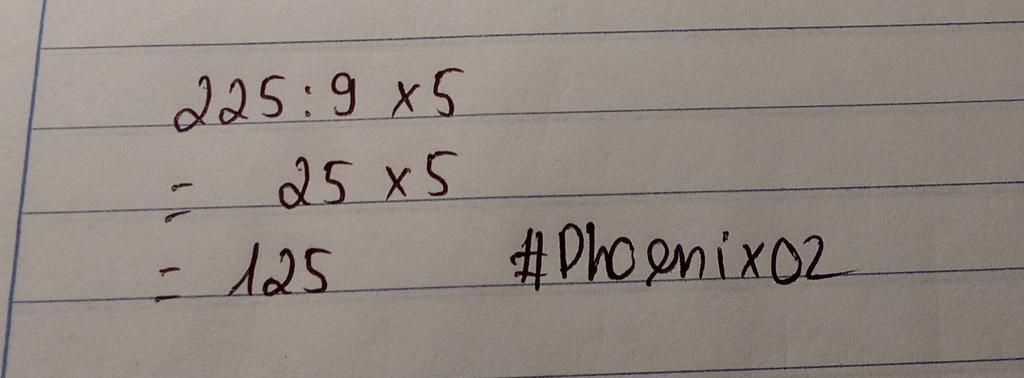 225:9 x5
= 25 x5
= 125 #Phoenix02